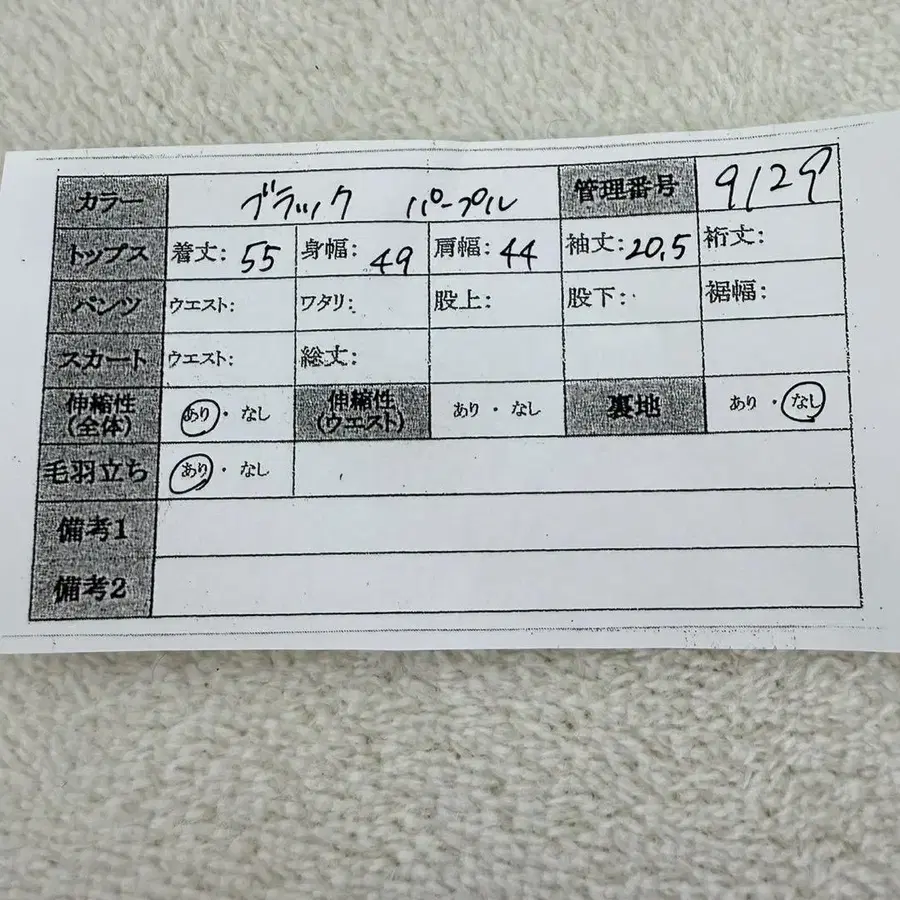 カラー ブラック パープル 管理番号 9129
トップス 着丈: 55 身幅: 49 肩幅: 44 袖丈: 20.5 裄丈:
パンツ ウエスト: ワタリ: 股上: 股下: 裾幅:
スカート ウエスト: 総丈:
伸縮性(全体) あり・なし 伸縮性(ウエスト) あり・なし 裏地 あり・なし
毛羽立ち あり・なし
備考1
備考2